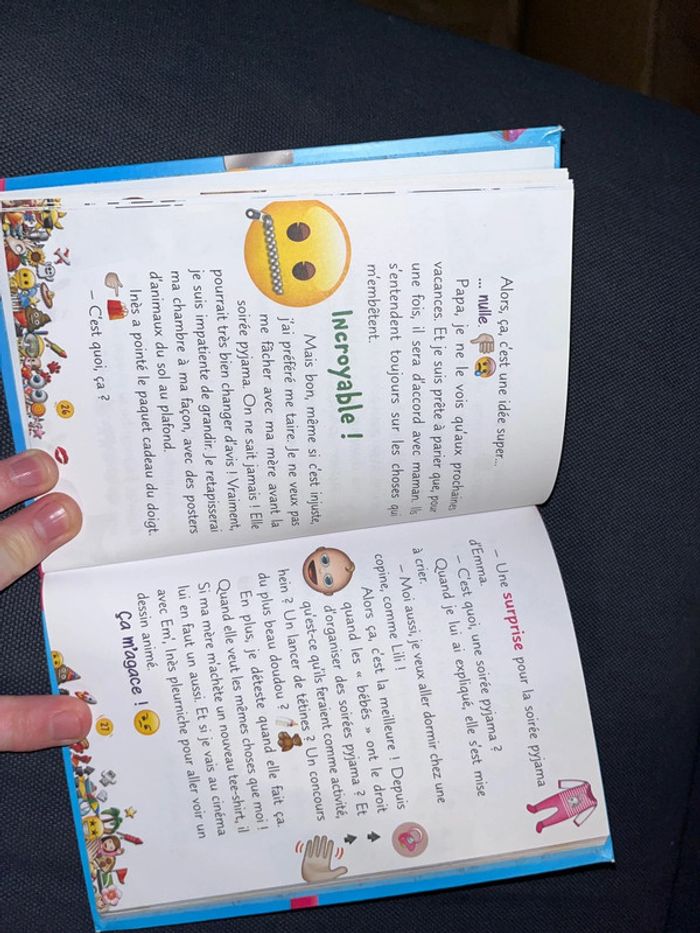 Alors, ça, c'est une idée super...
... nulle
Papa, je ne le vois qu'aux prochaines
vacances. Et je suis prête à parier que, pour
une fois, il sera d'accord avec maman. Ils
s'entendent toujours sur les choses qui
m'embêtent.
Incroyable !
Mais bon, même si c'est injuste,
j'ai préféré me taire. Je ne veux pas
me fâcher avec ma mère avant la
soirée pyjama. On ne sait jamais ! Elle
pourrait très bien changer d'avis ! Vraiment,
je suis impatiente de grandir. Je retapisserai
ma chambre à ma façon, avec des posters
d'animaux du sol au plafond.
Inès a pointé le paquet cadeau du doigt.
– C'est quoi, ça ?
26
– Une surprise pour la soirée pyjama
d'Emma.
– C'est quoi, une soirée pyjama ?
Quand je lui ai expliqué, elle s'est mise
à crier.
– Moi aussi, je veux aller dormir chez une
copine, comme Lili !
Alors ça, c'est la meilleure ! Depuis
quand les « bébés » ont le droit
d'organiser des soirées pyjama ? Et
qu'est-ce qu'ils feraient comme activité,
hein ? Un lancer de tétines ? Un concours
du plus beau doudou ?
En plus, je déteste quand elle fait ça.
Quand elle veut les mêmes choses que moi !
Si ma mère m'achète un nouveau tee-shirt, il
lui en faut un aussi. Et si je vais au cinéma
avec Em', Inès pleurniche pour aller voir un
dessin animé.
Ça m'agace !
27